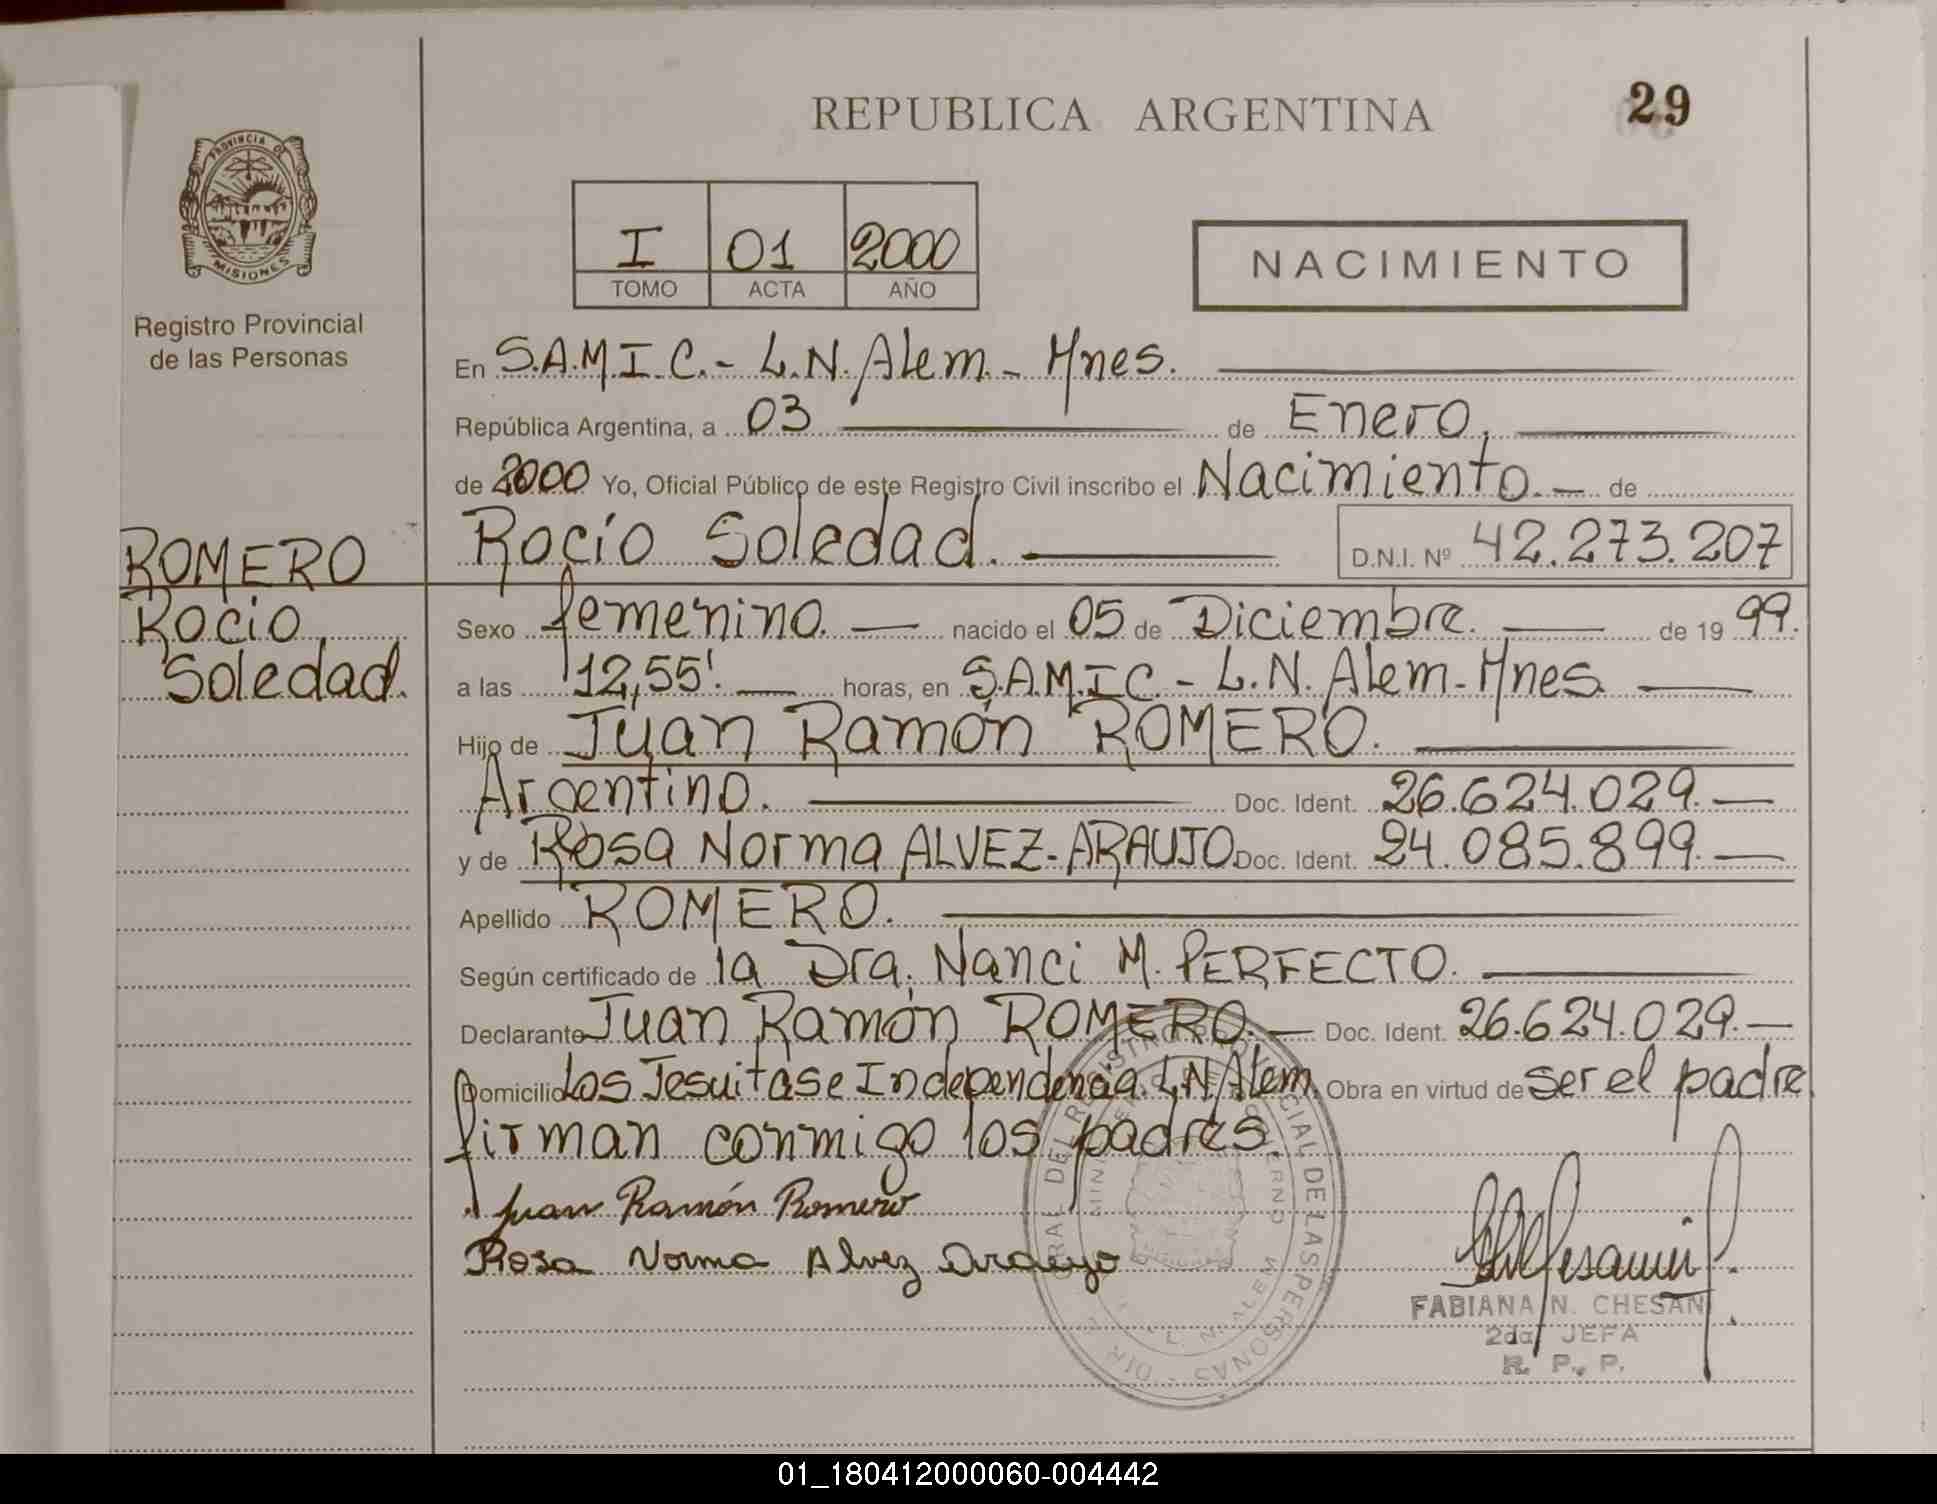 REPUBLICA ARGENTINA
29
PROVINCIA DE
MISIONES
Registro Provincial
de las Personas
I 01 2000
TOMO ACTA AÑO
NACIMIENTO
En S.A.M.I.C.- L.N. Alem.- Mnes.
República Argentina, a 03 de Enero,
de 2000 Yo, Oficial Público de este Registro Civil inscribo el Nacimiento.- de
Rocío Soledad. D.N.I. Nº 42.273.207
ROMERO
Rocío
Soledad.
Sexo femenino. nacido el 05 de Diciembre. de 19 99.
a las 12,55'. horas, en S.A.M.I.C.- L.N. Alem-Mnes.
Hijo de Juan Ramón ROMERO.
Argentino. Doc. Ident. 26.624.029.
y de Rosa Norma ALVEZ-ARAUJO Doc. Ident. 24.085.899.
Apellido ROMERO.
Según certificado de la Dra. Nanci M. PERFECTO.
Declarante Juan Ramón ROMERO. Doc. Ident. 26.624.029.
Domicilio Los Jesuitas e Independencia. L.N. Alem. Obra en virtud de ser el padre,
firman conmigo los padres.
Juan Ramón Romero
Rosa Norma Alvez Araujo
FABIANA N. CHESANI
2da. JEFA
R. P. P.
DEL REGISTRO PROVINCIAL DE LAS PERSONAS - DIR
L. N. ALEM
01_180412000060-004442